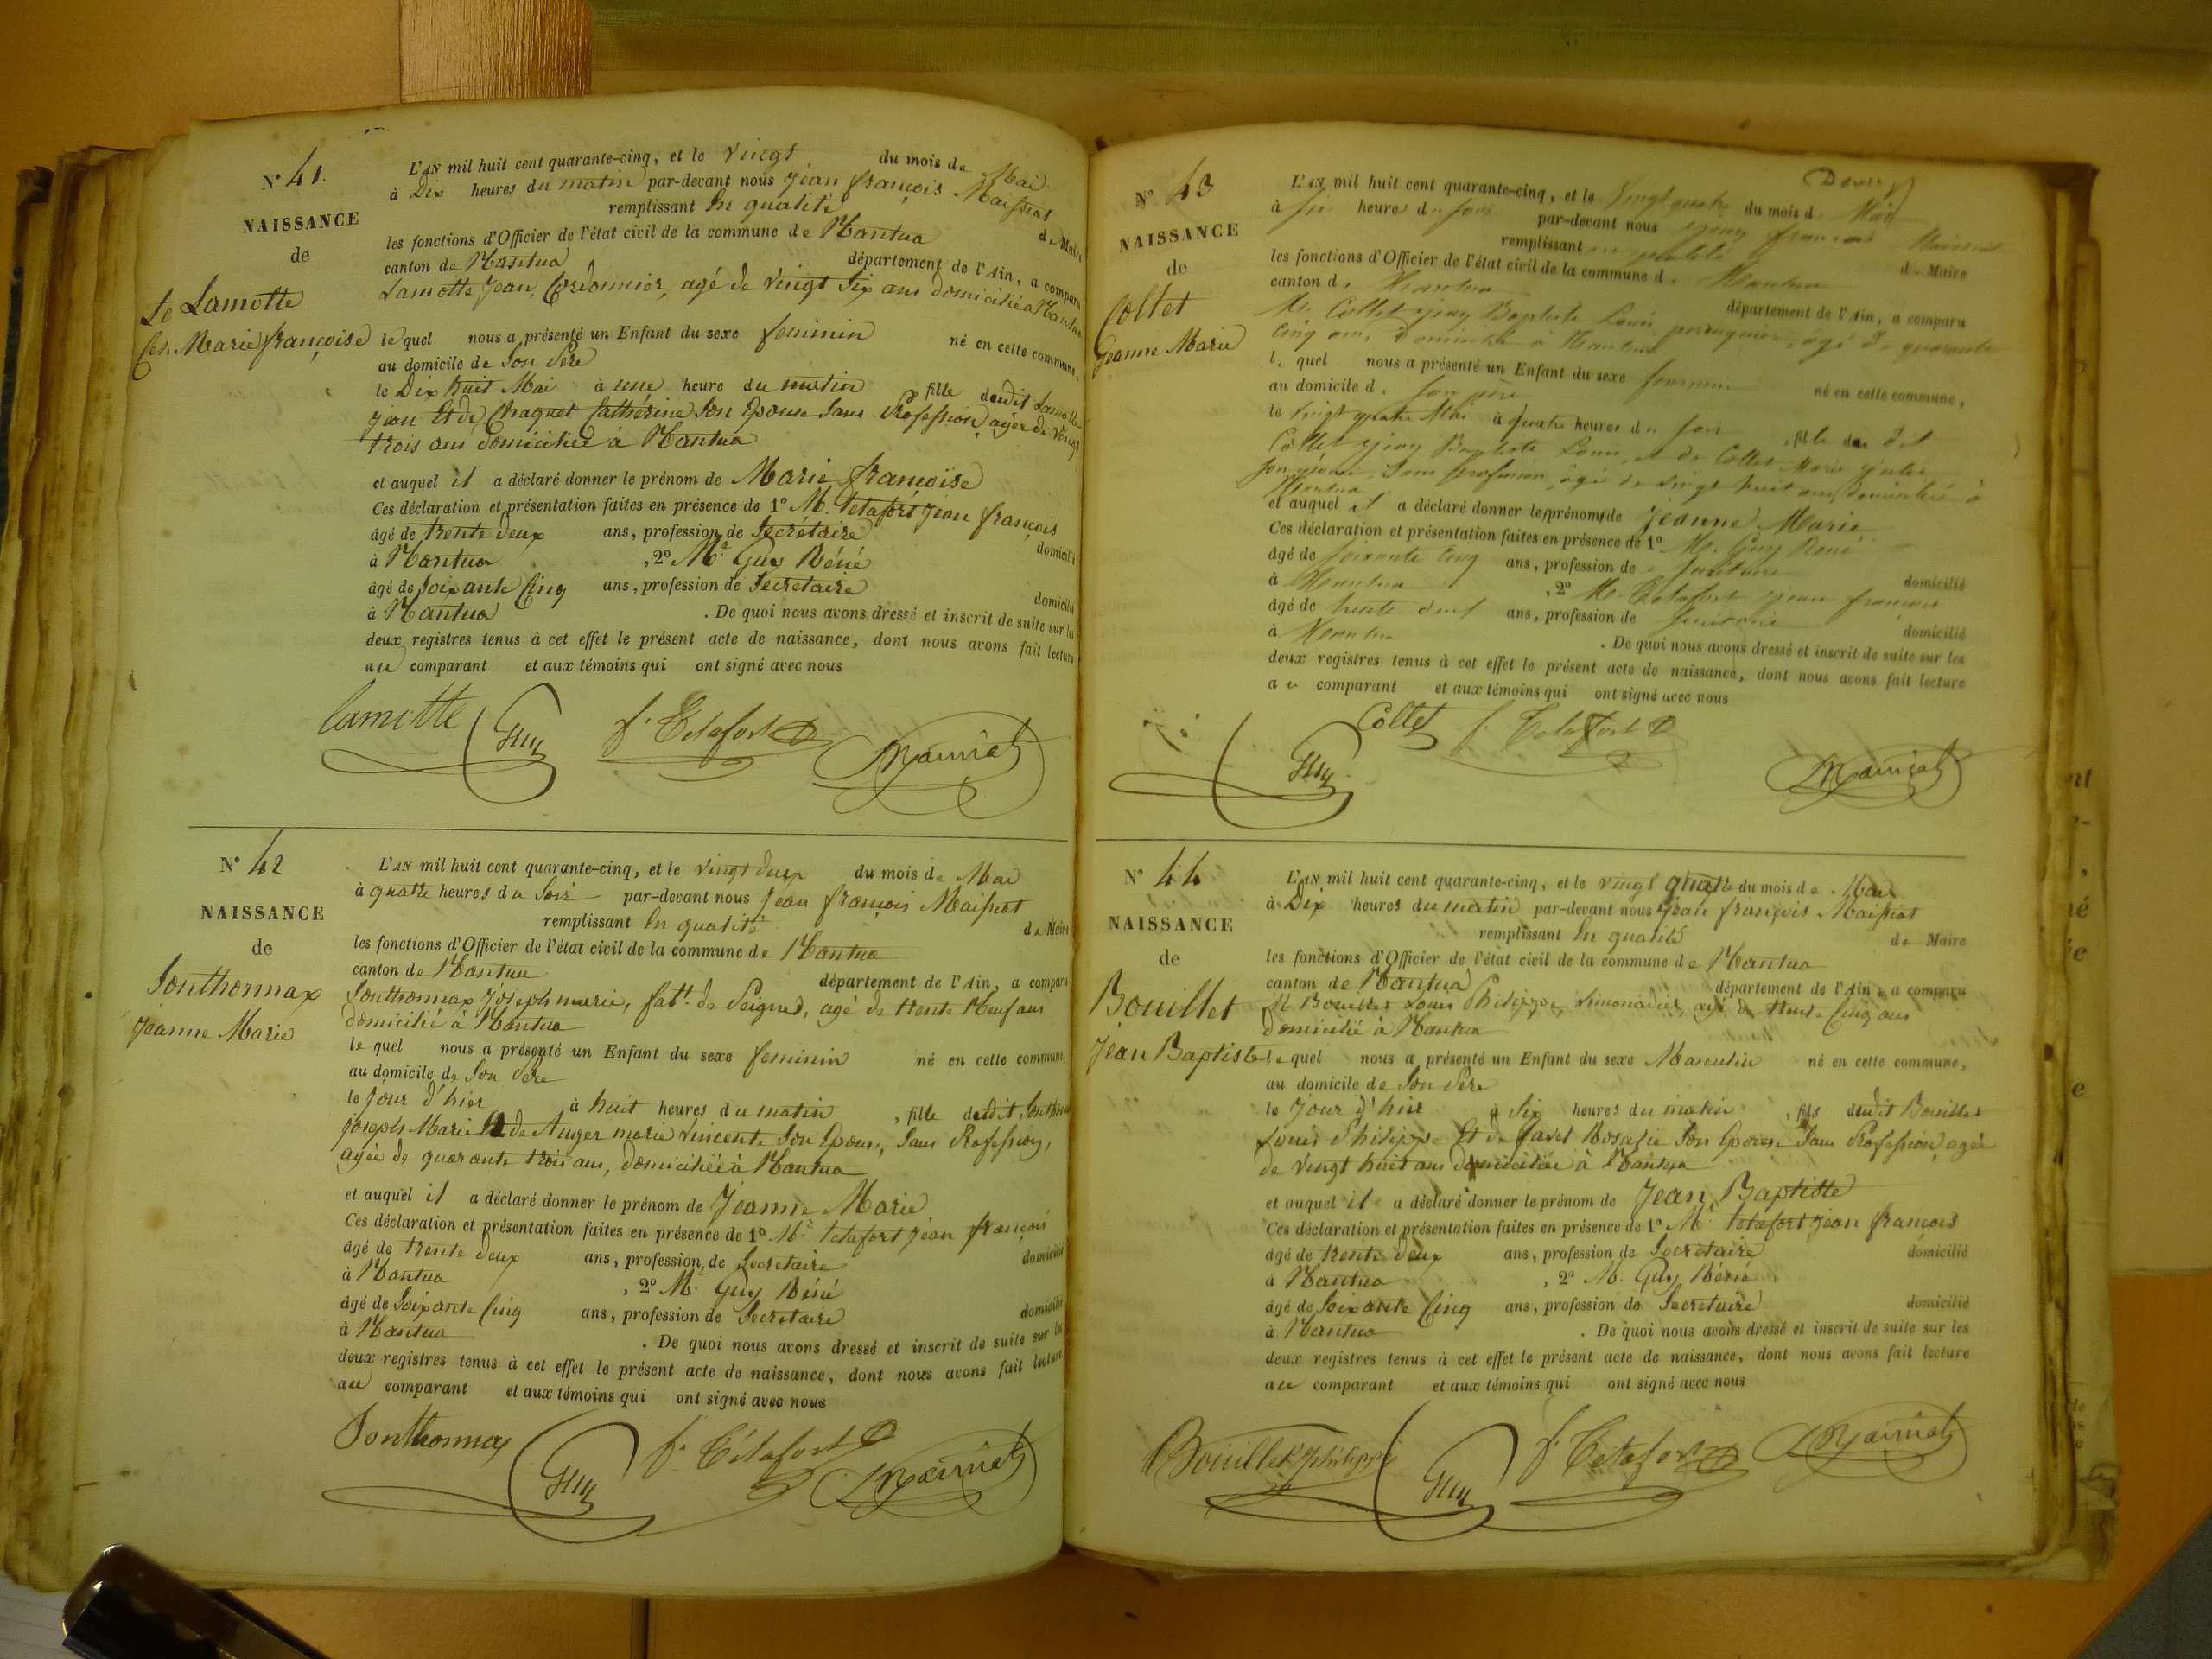 N° 41.
NAISSANCE
de
Lamotte
Marie françoise
L'AN mil huit cent quarante-cinq, et le vingt du mois de Mai
à Dix heures du matin par-devant nous Jean françois Maissiat
remplissant En qualité de Maire
les fonctions d'Officier de l'état civil de la commune de Nantua
canton de Nantua département de l'Ain, a comparu
Lamotte Jean, Cordonnier, agé de vingt Six ans domicilié à Nantua
le quel nous a présenté un Enfant du sexe feminin né en cette commune,
au domicile de Son Père
le Dix huit Mai à une heure du matin fille dudit Lamotte
Jean Et de Chaquet Cathérine Son Epouse Sans Profession, agée de vingt
trois ans domiciliée à Nantua
et auquel il a déclaré donner le prénom de Marie françoise
Ces déclaration et présentation faites en présence de 1° M. tétafort Jean françois
âgé de trente deux ans, profession de Secrétaire domicilié
à Nantua , 2° Mr Guy Réné
âgé de Soixante Cinq ans, profession de Secretaire domicilié
à Nantua . De quoi nous avons dressé et inscrit de suite sur les
deux registres tenus à cet effet le présent acte de naissance, dont nous avons fait lecture
au comparant et aux témoins qui ont signé avec nous
Lamotte Guy f. Tétafort Maissiat
N° 42
NAISSANCE
de
Jonthonnax
Jeanne Marie
L'AN mil huit cent quarante-cinq, et le vingt deux du mois de Mai
à quatre heures du Soir par-devant nous Jean françois Maissiat
remplissant En qualité de Maire
les fonctions d'Officier de l'état civil de la commune de Nantua
canton de Nantua département de l'Ain, a comparu
Jonthonnax Joseph marie, fabt. de Peignes, agé de trente Neuf ans
domicilié à Nantua
le quel nous a présenté un Enfant du sexe feminin né en cette commune,
au domicile de Son Père
le Jour d'hier à huit heures du matin , fille dudit Jonthonnax
Joseph Marie Et de Auger marie vincente Son Epouse, Sans Profession,
agée de quarante trois ans, domiciliée à Nantua
et auquel il a déclaré donner le prénom de Jeanne Marie
Ces déclaration et présentation faites en présence de 1° Mr tétafort Jean françois
âgé de trente deux ans, profession de Secretaire domicilié
à Nantua , 2° Mr Guy Réné
âgé de Soixante Cinq ans, profession de Secretaire domicilié
à Nantua . De quoi nous avons dressé et inscrit de suite sur les
deux registres tenus à cet effet le présent acte de naissance, dont nous avons fait lecture
au comparant et aux témoins qui ont signé avec nous
Jonthonnax Guy f. Tétafort Maissiat
N° 43
NAISSANCE
de
Collet
Jeanne Marie
L'AN mil huit cent quarante-cinq, et le vingt quatre du mois de Mai
à six heures du soir par-devant nous Jean françois Maissiat
remplissant en qualité de Maire
les fonctions d'Officier de l'état civil de la commune de Nantua
canton de Nantua département de l'Ain, a comparu
Mr. Collet Jean Baptiste Louis perruquier, âgé de quarante
Cinq ans, domicilié à Nantua
le quel nous a présenté un Enfant du sexe feminin né en cette commune,
au domicile de son père
le vingt quatre Mai à quatre heures du soir , fille du dit
Collet Jean Baptiste Louis, et de Collet Marie Julie
son épouse, sans profession, âgée de vingt huit ans, domiciliée à
Nantua
et auquel il a déclaré donner les prénoms de Jeanne Marie
Ces déclaration et présentation faites en présence de 1° Mr. Guy René
âgé de soixante cinq ans, profession de secrétaire domicilié
à Nantua , 2° Mr. Tétafort Jean françois
âgé de trente deux ans, profession de secrétaire domicilié
à Nantua . De quoi nous avons dressé et inscrit de suite sur les
deux registres tenus à cet effet le présent acte de naissance, dont nous avons fait lecture
au comparant et aux témoins qui ont signé avec nous
Collet f. Tétafort
Guy Maissiat
N° 44
NAISSANCE
de
Bouillet
Jean Baptiste
L'AN mil huit cent quarante-cinq, et le vingt quatre du mois de Mai
à Dix heures du matin par-devant nous Jean françois Maissiat
remplissant En qualité de Maire
les fonctions d'Officier de l'état civil de la commune de Nantua
canton de Nantua département de l'Ain, a comparu
M. Bouillet Louis Philippe, Limonadier, agé de trente Cinq ans
domicilié à Nantua
le quel nous a présenté un Enfant du sexe Masculin né en cette commune,
au domicile de Son Père
le Jour d'hier à Six heures du matin , fils dudit Bouillet
Louis Philippe Et de Javel Rosalie Son Epouse Sans Profession, agée
de vingt huit ans domiciliée à Nantua
et auquel il a déclaré donner le prénom de Jean Baptiste
Ces déclaration et présentation faites en présence de 1° Mr tétafort Jean françois
âgé de trente deux ans, profession de Secrétaire domicilié
à Nantua , 2° M. Guy Réné
âgé de Soixante Cinq ans, profession de Secretaire domicilié
à Nantua . De quoi nous avons dressé et inscrit de suite sur les
deux registres tenus à cet effet le présent acte de naissance, dont nous avons fait lecture
au comparant et aux témoins qui ont signé avec nous
Bouillet philippe Guy f. Tétafort Maissiat